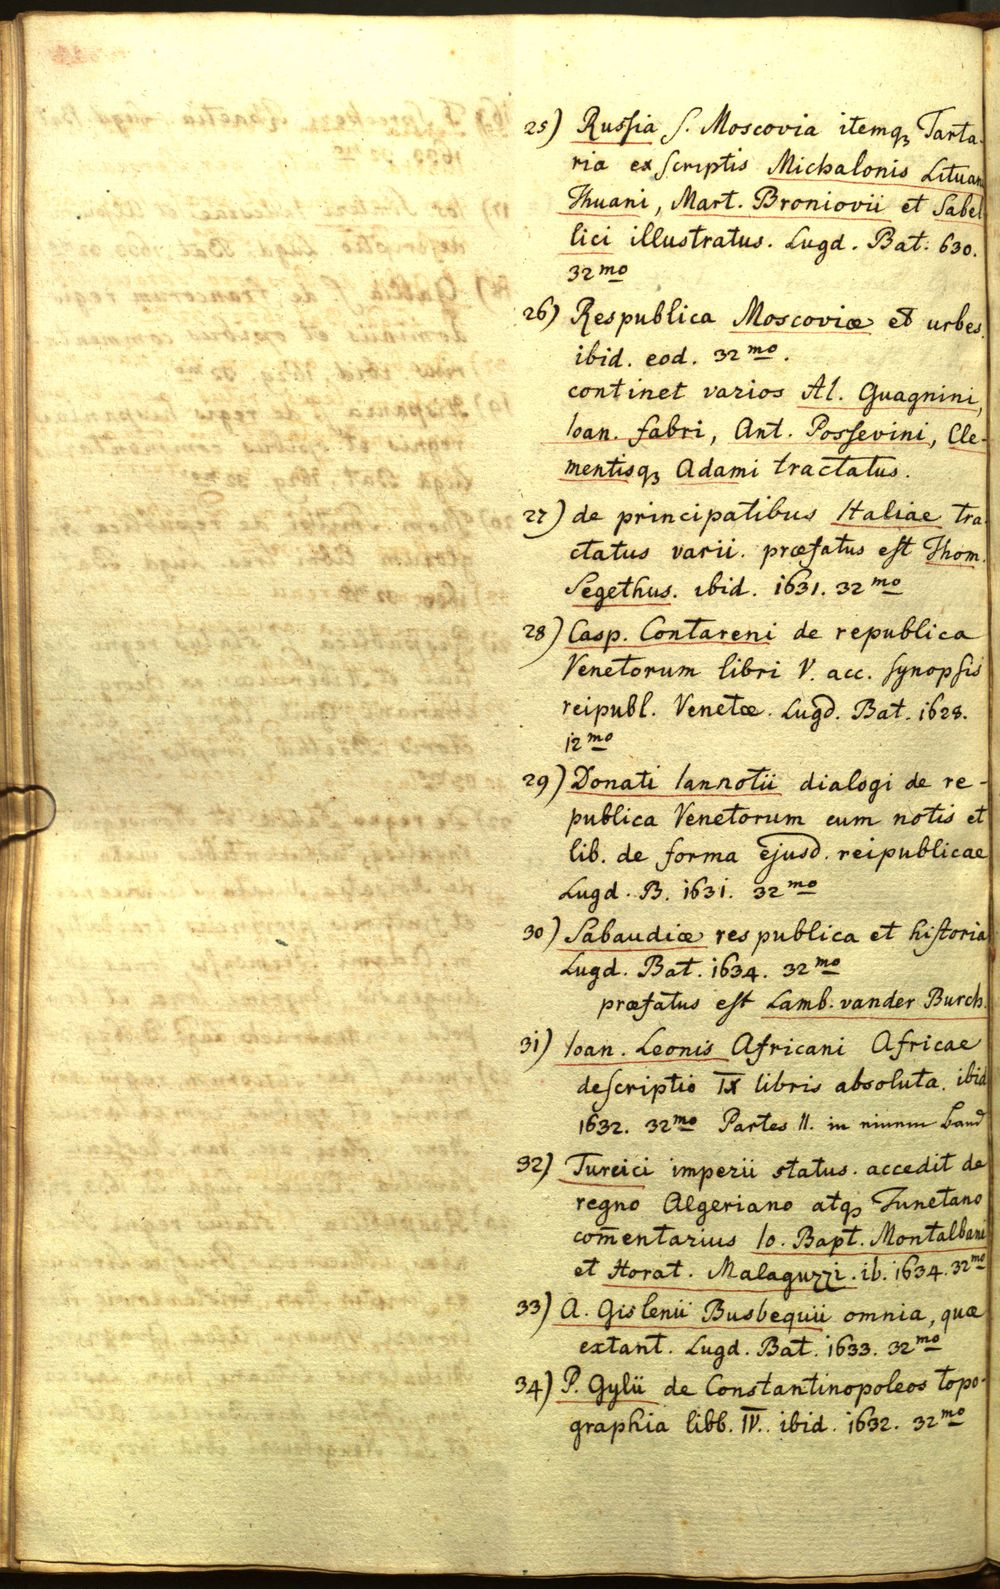 25) Russia s. Moscovia itemq₃ Tarta-
ria ex scriptis Michalonis Lituani
Thuani, Mart. Broniovii et Sabel
lici illustratus. Lugd. Bat. 630.
32mo
26) Respublica Moscoviæ et urbes.
ibid. eod. 32mo.
continet varios Al. Guagnini,
Ioan. Fabri, Ant. Possevini, Cle-
mentisq₃ Adami tractatus.
27) de principatibus Italiae tra
ctatus varii. præfatus est Thom.
Segethus. ibid. 1631. 32mo
28) Casp. Contareni de republica
Venetorum libri V. acc. synopsis
reipubl. Venetæ. Lugd. Bat. 1628.
12mo
29) Donati Iannotii dialogi de re-
publica Venetorum cum notis et
lib. de forma ejusd. reipublicae
Lugd. B. 1631. 32mo
30) Sabaudiæ respublica et historia
Lugd. Bat. 1634. 32mo
præfatus est Lamb. vander Burch.
31) Ioan. Leonis Africani Africae
descriptio IX libris absoluta. ibid
1632. 32mo Partes II. in einem Band
32) Turcici imperii status. accedit de
regno Algeriano atq₃ Tunetano
com̄entarius Io. Bapt. Montalbani
et Horat. Malaguzzi. ib. 1634. 32mo
33) A. Gislenii Busbequii omnia, quæ
extant. Lugd. Bat. 1633. 32mo
34) P. Gylii de Constantinopoleos topo-
graphia libb. IV. ibid. 1632. 32mo